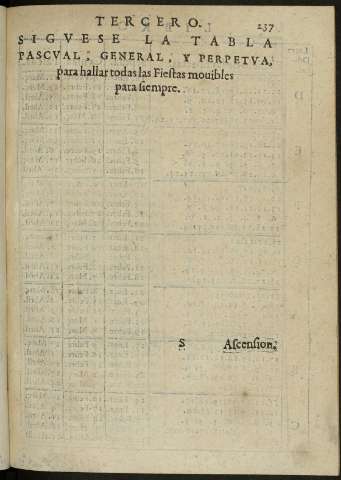 TERCERO. 237
SIGVESE LA TABLA
PASCVAL, GENERAL, Y PERPETVA,
para hallar todas las Fiestas mouibles
para siempre.
S Ascension,